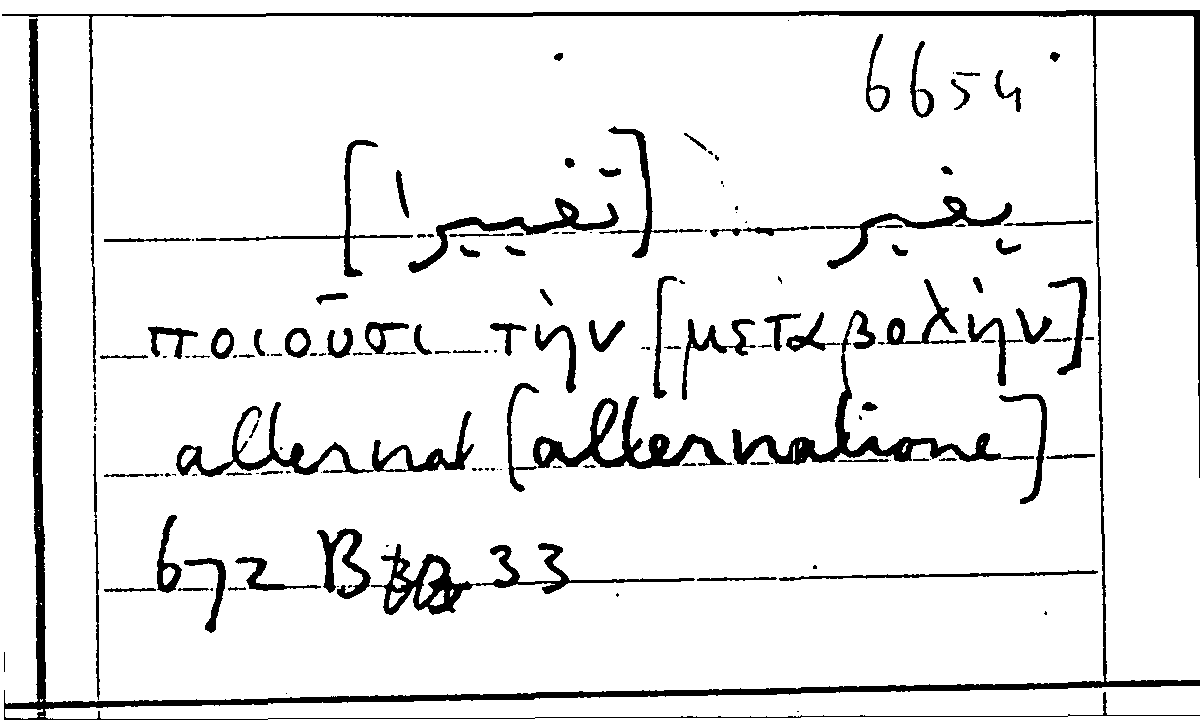 6654
يغير ... [تغييرا]
ποιοῦσι τὴν [μεταβολὴν]
alternat [alternatione]
672 B 33